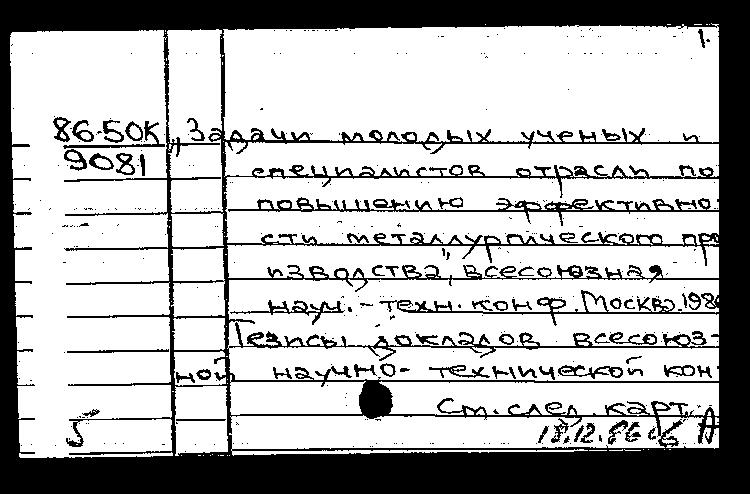 1.
86-50К „Задачи молодых ученых и
9081
специалистов отрасли по
повышению эффективно-
сти металлургического про
изводства", всесоюзная
науч.-техн. конф. Москва. 1986
Тезисы докладов всесоюз-
ной научно-технической кон-
См. след. карт.
5 18.12.86 А